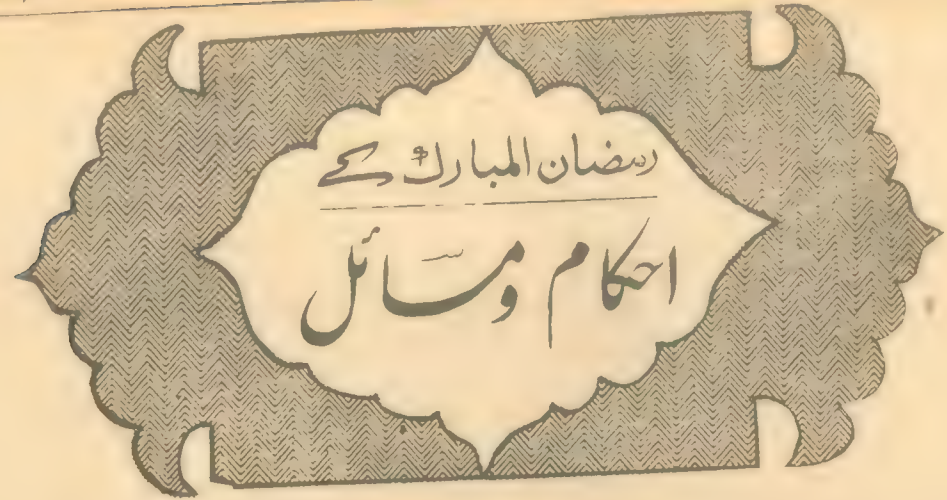 رمضان المبارک کے
احکام و مسائل